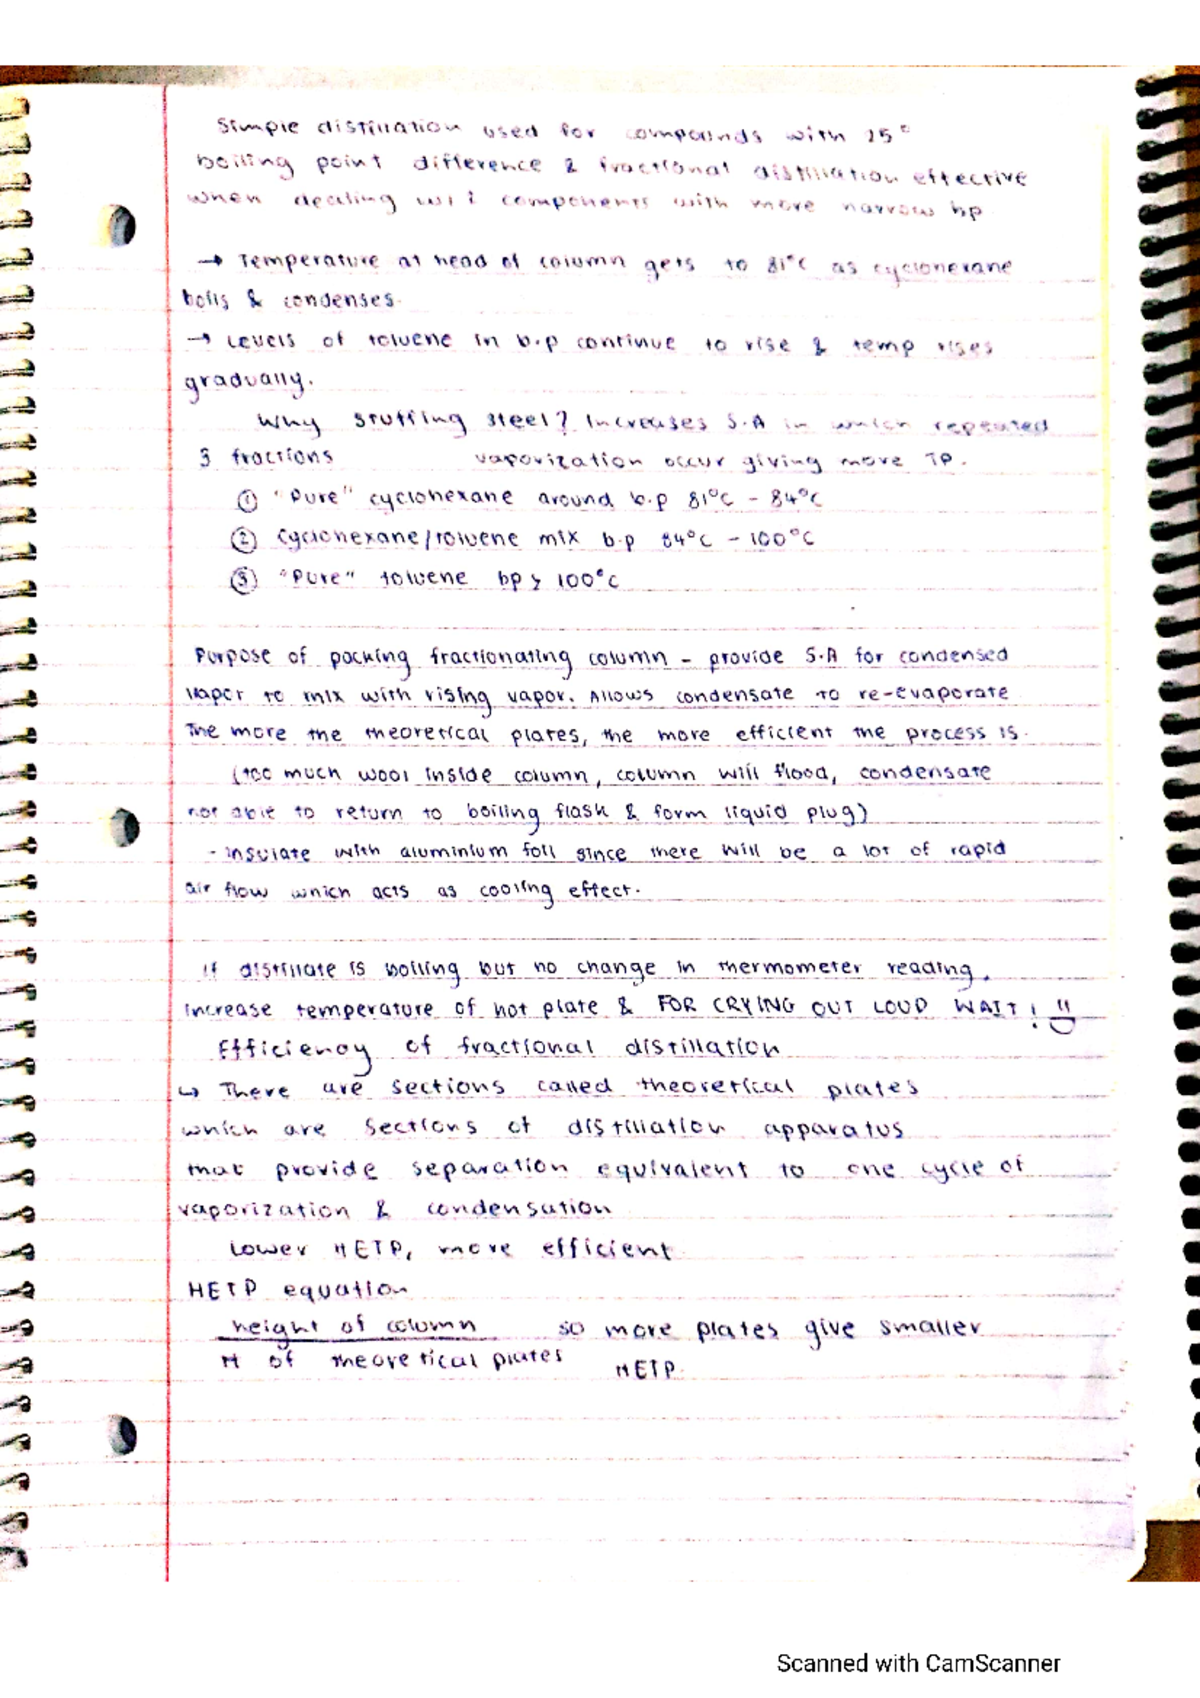 Simple distillation used for compounds with 25°
boiling point difference & fractional distillation effective
when dealing w/ components with more narrow bp
→ Temperature at head of column gets to 81°C as cyclohexane
boils & condenses.
→ Levels of toluene in b.p continue to rise & temp rises
gradually.
Why stuffing steel? Increases S.A in which repeated
3 fractions vaporization occur giving more TP.
① "Pure" cyclohexane around b.p 81°C - 84°C
② Cyclohexane/toluene mix b.p 84°C - 100°C
③ "Pure" toluene bp > 100°C
Purpose of packing fractionating column - provide S.A for condensed
vapor to mix with rising vapor. Allows condensate to re-evaporate
The more the theoretical plates, the more efficient the process is.
(too much wool inside column, column will flood, condensate
not able to return to boiling flask & form liquid plug)
- Insulate with aluminium foil since there will be a lot of rapid
air flow which acts as cooling effect.
If distillate is boiling but no change in thermometer reading,
increase temperature of hot plate & FOR CRYING OUT LOUD WAIT!
Efficiency of fractional distillation
↳ There are sections called theoretical plates
which are sections of distillation apparatus
that provide separation equivalent to one cycle of
vaporization & condensation
Lower HETP, more efficient
HETP equation
height of column so more plates give smaller
# of theoretical plates HETP.
Scanned with CamScanner